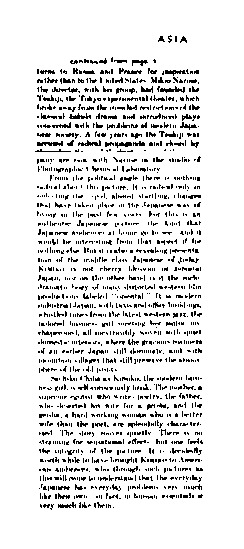 ASIA
continued from page 4
turns to Russia and France for inspiration
rather than to the United States. Mikio Naruse,
the director, with his group, had founded the
Tsukiji, the Tokyo experimental theater, which
broke away from the
classical kabuki drama and introduced plays
concerned with the problems of modern Japa-
nese society. A few years ago the Tsukiji was
accused of radical propaganda and closed by
pany are now with Naruse in the studio of
Photographic Chemical Laboratory.
From the political angle there is nothing
radical about this picture. It is radical only in
the changes
that have taken place in the Japanese way of
living in the past few years. For this is an
authentic Japanese picture, the kind that
Japanese audiences at home go to see. And it
would be interesting from that aspect if for
nothing else. But it is also a revealing presenta-
tion of the middle class Japanese of today.
Kimiko is not cherry blossom or
Japan, nor on the other hand is it the melo-
dramatic of many distorted western film
productions labeled "oriental." It is modern
industrial Japan, with taxis and office buildings,
whistled tunes from the latest western jazz, the
tailored business girl meeting her
all inextricably woven with quiet
domestic interiors, where the gracious manners
of an earlier Japan still dominate, and with
mountain villages that still preserve the atmos-
phere of the old
Sachiko Chiba as Kimiko, the modern Japa-
nese girl, is The mother, a
against who writes poetry, the father,
who deserted his wife for a geisha, and the
geisha, a hard working woman who is a better
wife than the poet, are splendidly character-
ized. The story moves quietly. There is no
straining for sensational effects but one feels
the integrity of the picture. It is decidedly
worth while to have brought Kimiko to Ameri-
can audiences, who through such pictures as
this will come to understand that the everyday
Japanese has everyday problems very much
like their own in fact, in human essentials is
very much like them.